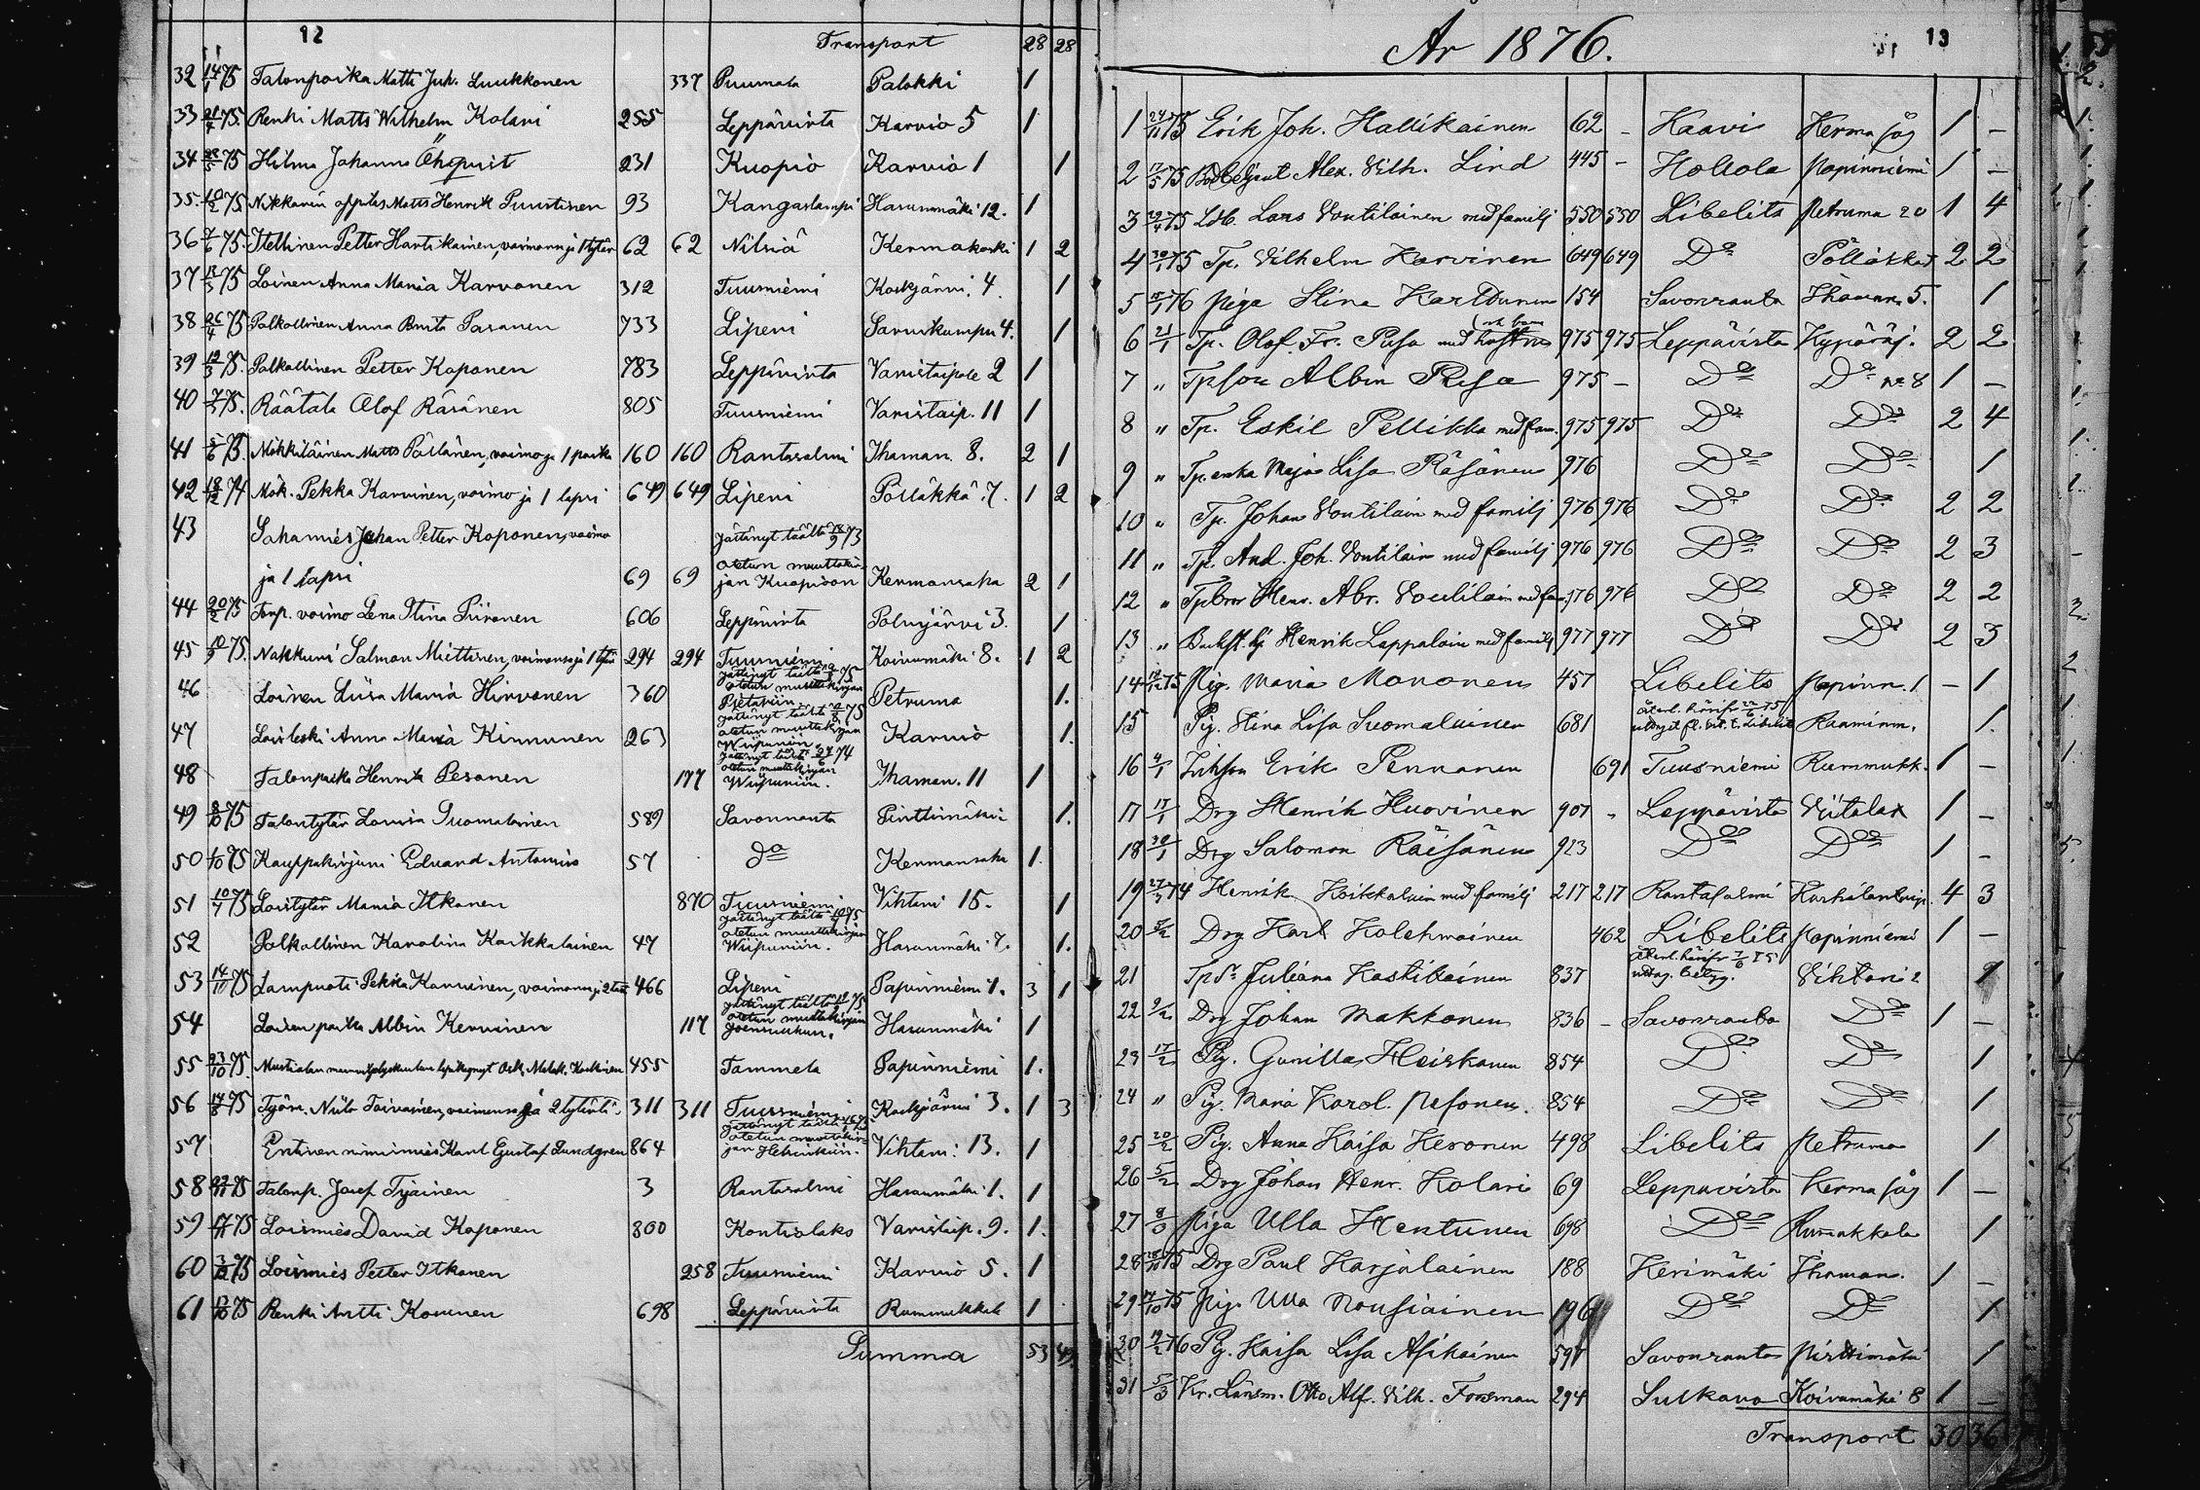 12
Transport 28 28
32 14/1 75 Talonpoika Matti Juh. Luukkonen 337 Puumala Palokki 1
33 21/4 75. Renki Matts Wilhelm Kolari 255 Leppävirta Karvio 5 1
34 75 Hilma Johanna Öhqvist 231 Kuopio Karvio 1 1
35. 10/2 75 Nikkarin oppilas Matts Henrik Puustinen 93 Kangaslampi Hasunmäki 12. 1
36 7/6 75 Itellinen Petter Hartikainen, vaimonsa ja 1 tytär 62 62 Nilsiä Kermakoski 1 2
37 75 Loinen Anna Maria Karvonen 312 Tuusniemi Koskijärvi 4. 1
38 26/4 75 Palkollinen Anna Brita Pasanen 733 Liperi Sarvikumpu 4. 1
39 75. Palkollinen Petter Koponen 783 Leppävirta Varistaipale 2 1
40 75. Räätäli Olof Räsänen 805 Tuusniemi Varistaip. 11 1
41 75. Mökkiläinen Matts Pöllänen, vaimo ja 1 poika 160 160 Rantasalmi Ihaman. 8. 2 1
42 18/12 74 Mök. Pekka Karvinen, vaimo ja 1 lapsi 649 649 Liperi Pölläkkä. 7. 1 2
43 Sahamies Johan Petter Koponen, vaimo jättänyt täältä 73
ja 1 lapsi 69 69 otetun muuttokir-
jan Kuopioon Kermansaha 2 1
44 75 Tenp. vaimo Lena Stina Piironen 606 Leppävirta Polvijärvi 3. 1
45 75. Nahkuri Salmon Miettinen, vaimonsa ja 1 tytär 294 294 Tuusniemi Koivumäki 8. 1 2
46 Loinen Liisa Maria Hirvonen 360 jättänyt täältä 75
otetun muuttokirjan
Pietariin. Petruma 1.
47 Loisleski Anna Maria Kinnunen 263 jättänyt täältä 75
otetun muuttokirjan
Wiipuriin. Karvio 1.
48 Talonpoika Henrik Pesonen 177 jättänyt täältä 74
otetun muuttokirjan
Wiipuriin. Ihaman. 11 1
49 75 Talontytär Lovisa Suomalainen 589 Savonranta Pirttimäki 1.
50 75 Kauppakirjuri Eduard Antonius 57 do Kermansaha 1.
51 75 Loistytär Maria Itkonen 870 Tuusniemi Vihtari 15. 1
52 Palkollinen Karolina Karkkalainen 47 jättänyt täältä 75
otetun muuttokirjan
Wiipuriin. Hasunmäki 7. 1.
53 14/10 75 Lampuoti Pekka Karvinen, vaimonsa ja 466 Liperi Papinniemi 1. 3 1
54 Loisen poika Albin Kervinen 117 jättänyt täältä 75
otetun muuttokirjan
Joensuuhun. Hasunmäki 1
55 23/10 75. 455 Tammela Papinniemi 1.
56 75 Työm. Niilo Toivainen, vaimonsa ja 2 tytärtä 311 311 Tuusniemi Koskijärvi 3. 1 3
57 Entinen nimismies Karl Gustaf Lundgren 864 jättänyt täältä
otetun muuttokir-
jan Helsinkiin. Vihtari 13. 1
58 75 Talonp. Josef Tyäinen 3 Rantasalmi Hasunmäki 1. 1
59 75 Loismies David Koponen 800 Kontiolaks Varistaip. 9. 1.
60 75 Loismies Petter Itkonen 258 Tuusniemi Karvio 5. 1
61 75 Renki Antti Kononen 698 Leppävirta Rummukkala 1
Summa 53 49
13
År 1876.
1 75 Erik Joh. Hallikainen 62 – Kaavi Kerma såg 1 –
2 75 Alex. Vilh. Lind 445 – Hollola Papinniemi 1 –
3 75 Lars Voutilainen med familj 550 550 Libelits Petruma 20 1 4
4 75 Tp. Vilhelm Karvinen 649 649 Do Pölläkkä 7 2 2
5 76 Piga Stina Karttunen 154 Savonranta Ihaman. 5. 1
6 21/1 Tp. Olof Fr. Pusa med hustru och barn 975 975 Leppävirta Kypäräj. 2 2
7 " Tpson Albin Pusa 975 – Do Do No 8 1 –
8 " Tp. Eskil Pellikka med fam. 975 975 Do Do 2 4
9 " Tp. enka Maja Lisa Räsänen 976 Do Do 1
10 " Tp. Johan Voutilain med familj 976 976 Do Do 2 2
11 " Tp. And. Joh. Voutilain med familj 976 976 Do Do 2 3
12 " Tpbror Henr. Abr. Voutilain med fam. 976 976 Do Do 2 2
13 " Henrik Lappalain med familj 977 977 Do Do 2 3
14 75 Pig. Maria Mononen 457 Libelits Papinn. 1 – 1
15 Pig. Stina Lisa Suomalainen 681 Libelits Raaminm. 1.
16 Erik Pennanen 691 Tuusniemi Rummukk. 1 –
17 17/1 Drg Henrik Huovinen 907 " Leppävirta Viitalax 1 –
18 30/1 Drg Salomon Räisänen 923 Do Do 1 –
19 74 Henrik Koikkalain med familj 217 217 Rantasalmi 4 3
20 Drg Karl Kolehmainen 462 Libelits Papinniemi 1 –
21 Juliana Kostilainen 837 Vihtari 2 1
22 Drg Johan Makkonen 836 – Savonranta Do 1 –
23 17/2 Pig. Gunilla Heiskanen 854 Do Do 1
24 " Pig. Maria Karol. Pesonen. 854 Do Do 1
25 20/2 Pig. Anna Kaisa Keronen 498 Libelits Petruma 1
26 5/2 Drg Johan Henr. Kolari 69 Leppävirta Kerma såg 1 –
27 8/3 Piga Ulla Hentunen 698 Do Rummukkala 1
28 75 Drg Paul Karjalainen 188 Kerimäki Ihaman. 1 –
29 75 Pig. Ulla Nousiainen 196 Do Do 1
30 76 Pig. Kaisa Lisa Asikainen 597 Savonranta Pirttimäki 1
31 5/3 Kr. Länsm. Otto Alf. Vilh. Forsman 294 Sulkava Koivumäki 8 1 –
Transport 30 36